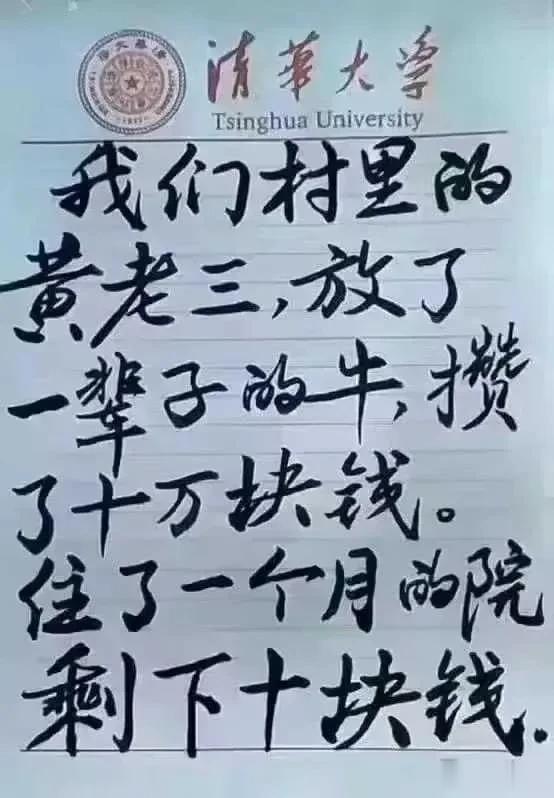 清华大学
Tsinghua University
我们村里的
黄老三,放了
一辈子的牛,攒
了十万块钱。
住了一个月的院
剩下十块钱.